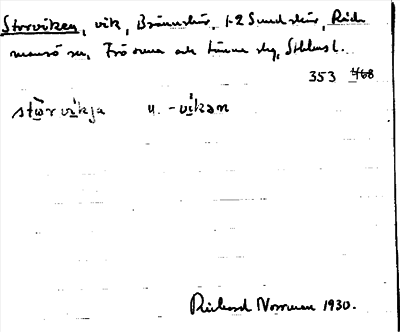 Storviken, vik, Brännskär, 1-2 Sundskär, Räd-
mansö sn, Frö och länna skg, Sthlms l.
353 468
stw̄rvikja u. -vikan
Rickard Norrman 1930.